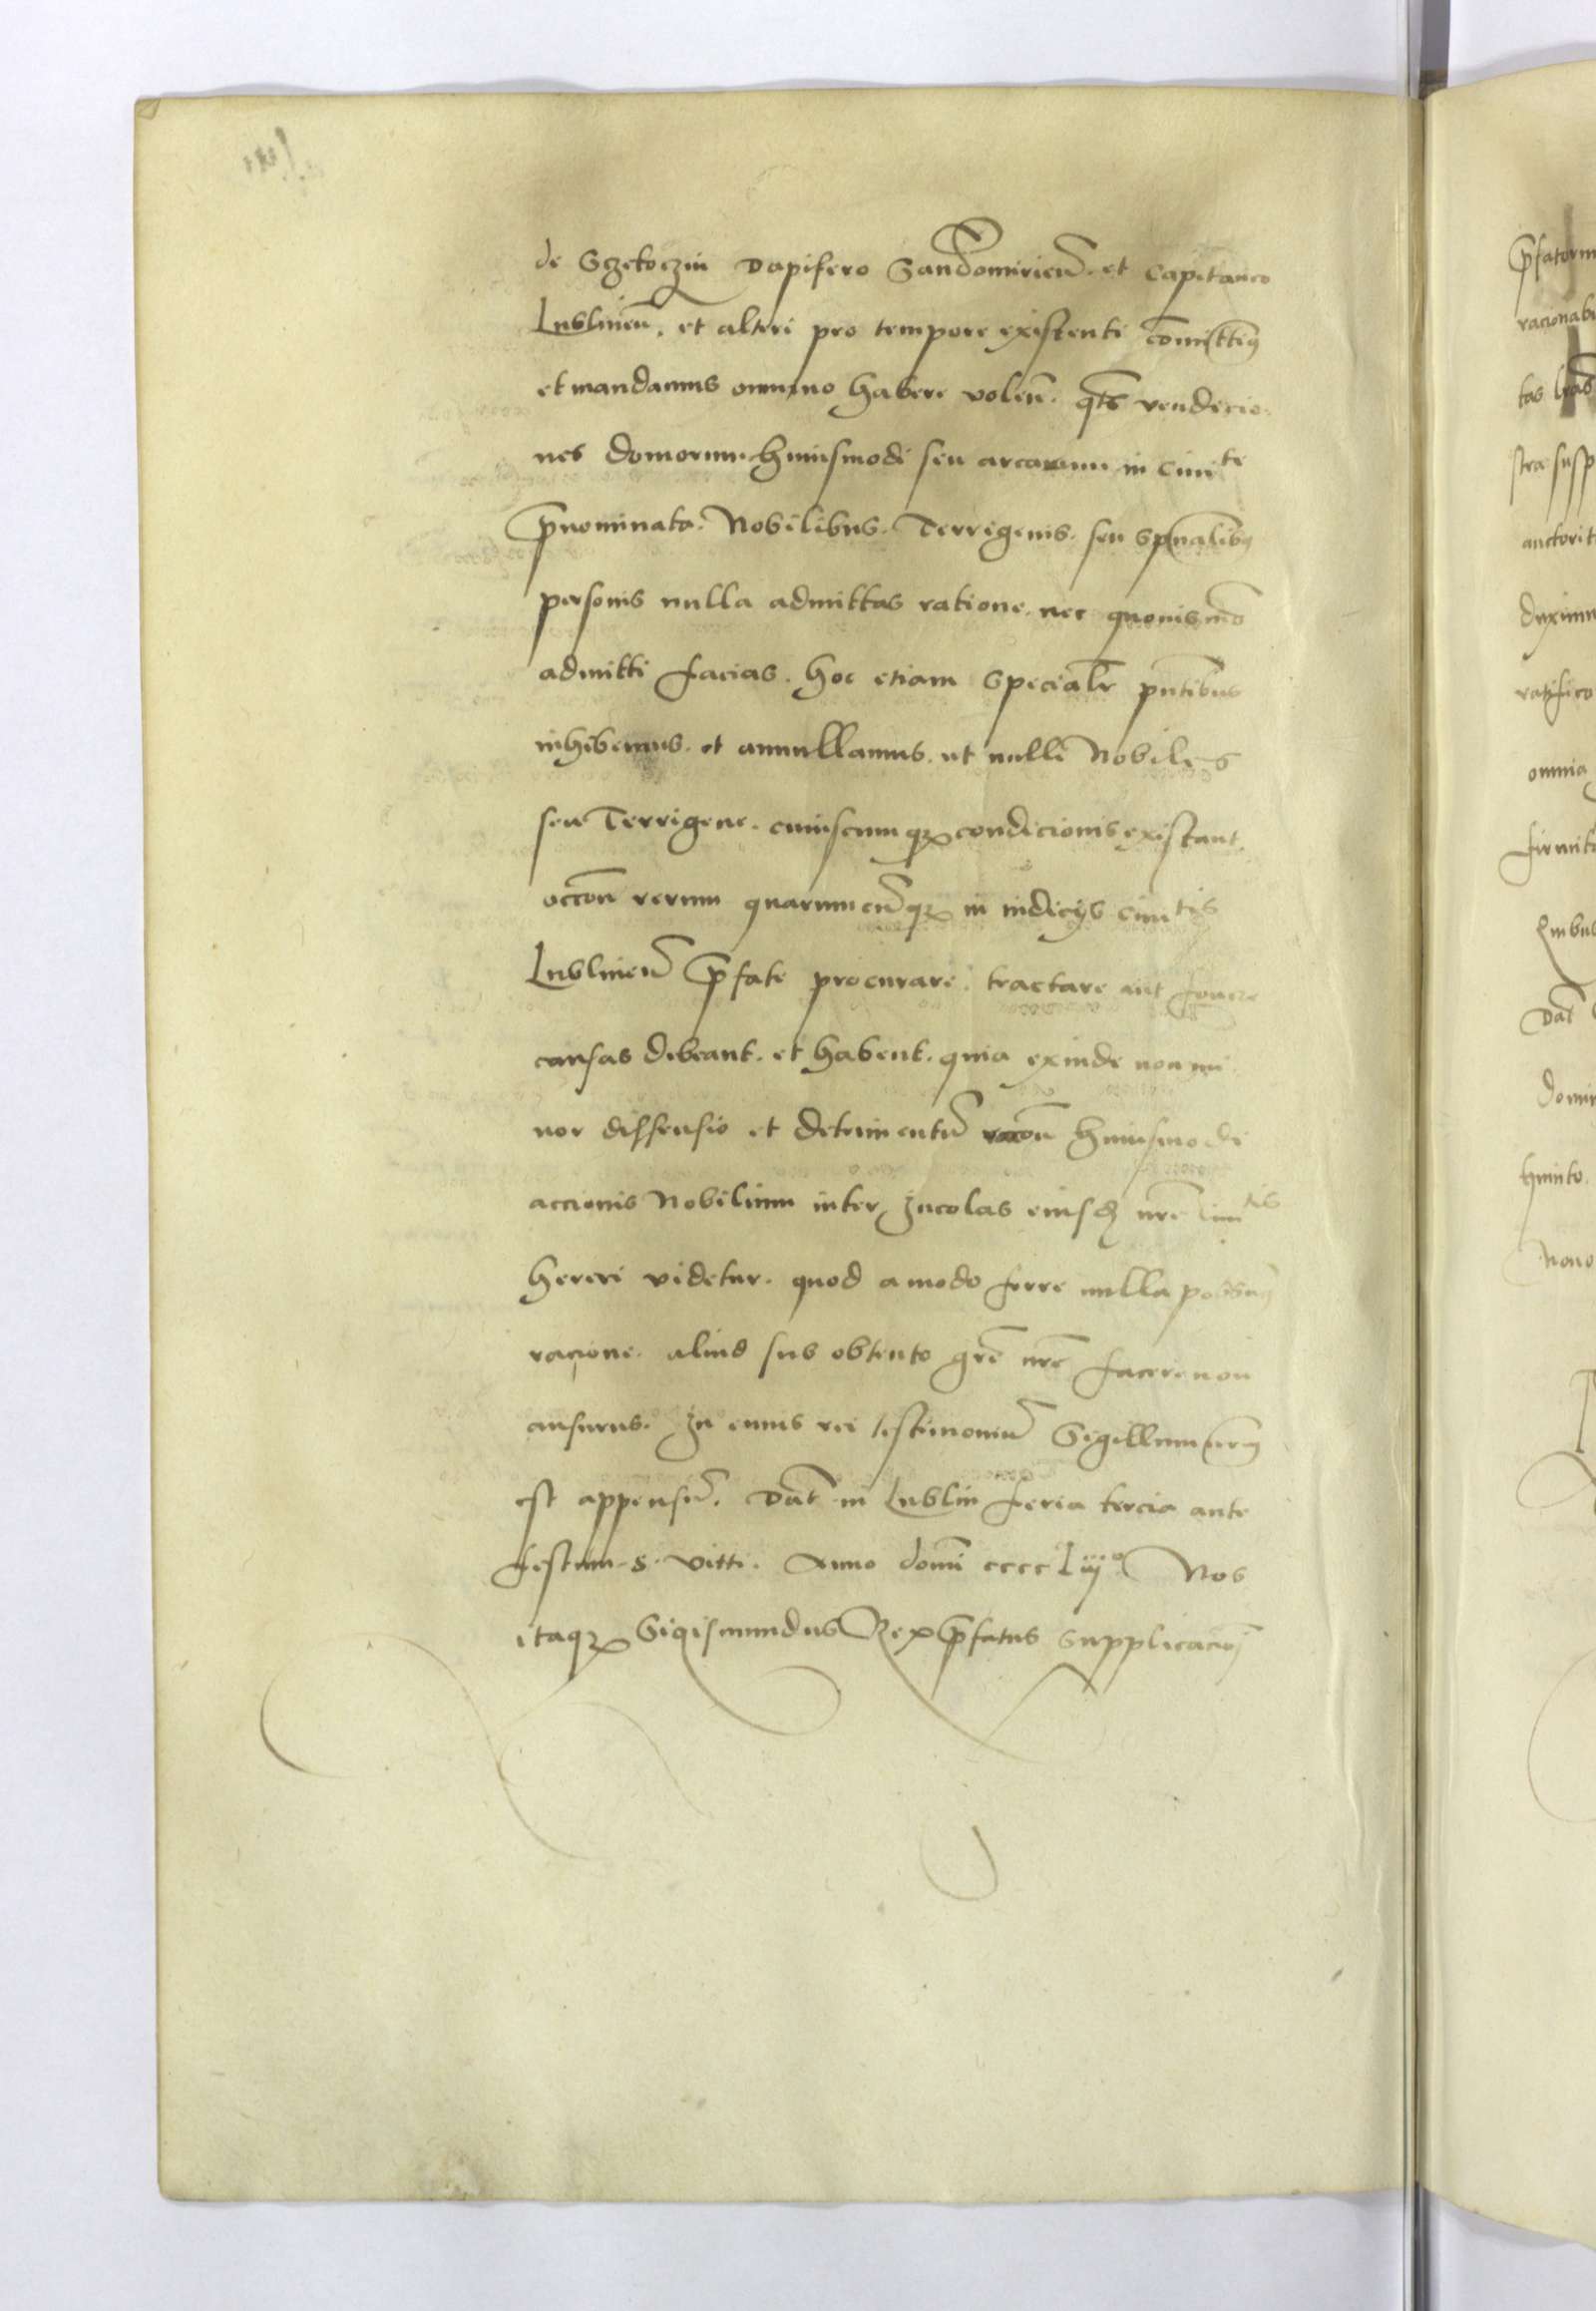 de Sczekoczin Dapifero Sandomirien̄. et Capitaneo
Lublinen̄. et alteri pro tempore existenti com̄ittim9
et mandamus omnino habere volen̄. q̄t̄s vendicio
nes domorum huiusmodi seu arearum in Ciui^te
p̄nominata. Nobilibus. Terrigenis. seu Sp̄ualib9
personis nulla admittas ratione. nec quouismō
admitti facias. hoc etiam specialr̄ pn̄tibus
inhibemus. et annullamus. ut nulli Nobiles
seu Terrigene. cuiuscumqꝫ condicionis existant.
occōn rerum quarumcūqꝫ in iudicijs Ciui^tis
Lublinen̄ p̄fate procurare. tractare aut fouere
causas debeant. et habent. quia exinde non mi
nor dissensio et detrimentū racōn huiusmodi
accionis Nobilium inter Incolas eiusdꝫ nr̄e Ciui^tis
hereri videtur. quod amodo ferre nulla possum9
racione. aliud sub obtento gr̄e nr̄e facere non
ausurus. In cuius rei testimoniū Sigillum nr̄m
est appensū. Dat̄ in Lublin feria tercia ante
festum S. Vitti. Anno domī cccc Liijº Nos
itaqꝫ Sigismundus Rex p̄fatus supplicacōnj
p̄fatorum
racionabi
tas lr̄as
stra susp
auctorit
duximu
ratifico
omnia
firmit
Quibus
Dat̄
domin
quinto.
Nono